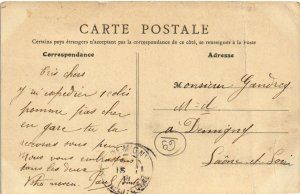 CARTE POSTALE
Certains pays étrangers n'acceptent pas la correspondance de ce côté, se renseigner à la Poste
Correspondance
Adresse
Très chers
J'ai expédier 1 colis
pomme pas cher
en gare tu la
recevras sous peu
Nous vous embrassons
tous les deux
Votre neveu Paul
Monsieur Gandrey
à Demigny
Saône et Loire